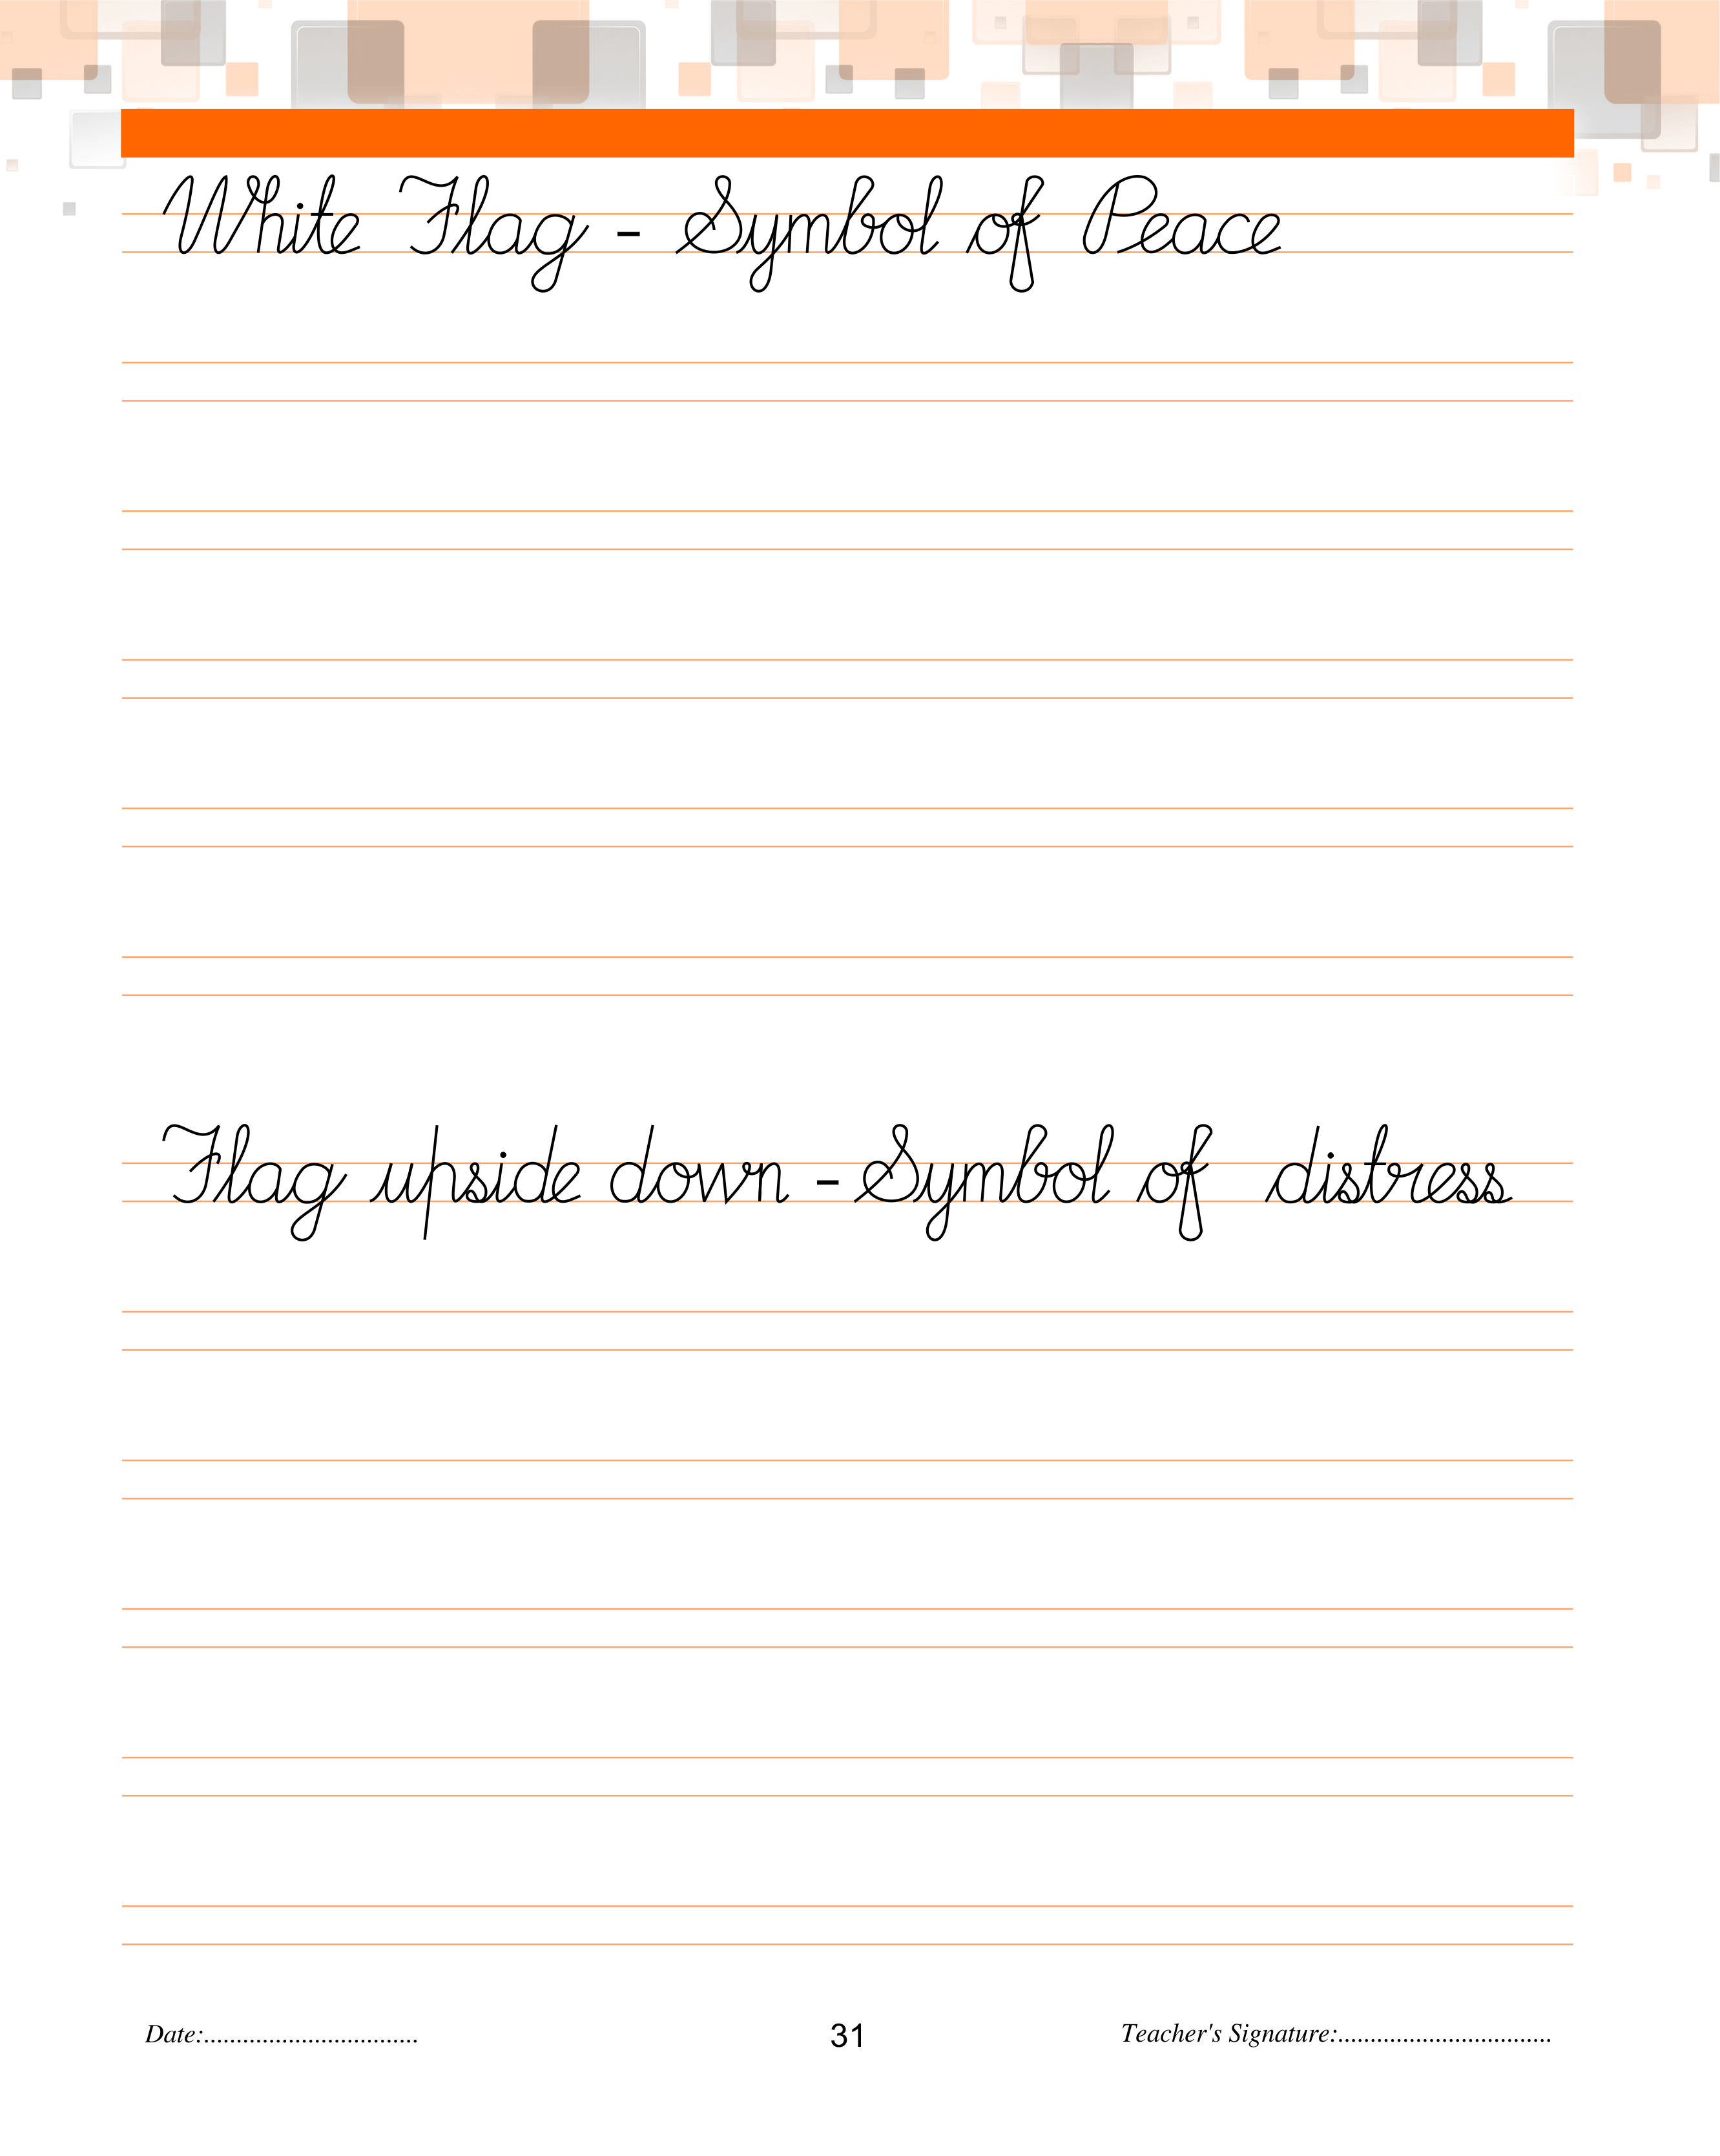 White Flag - Symbol of Peace
Flag upside down - Symbol of distress
Date:................................. 31 Teacher's Signature:.................................